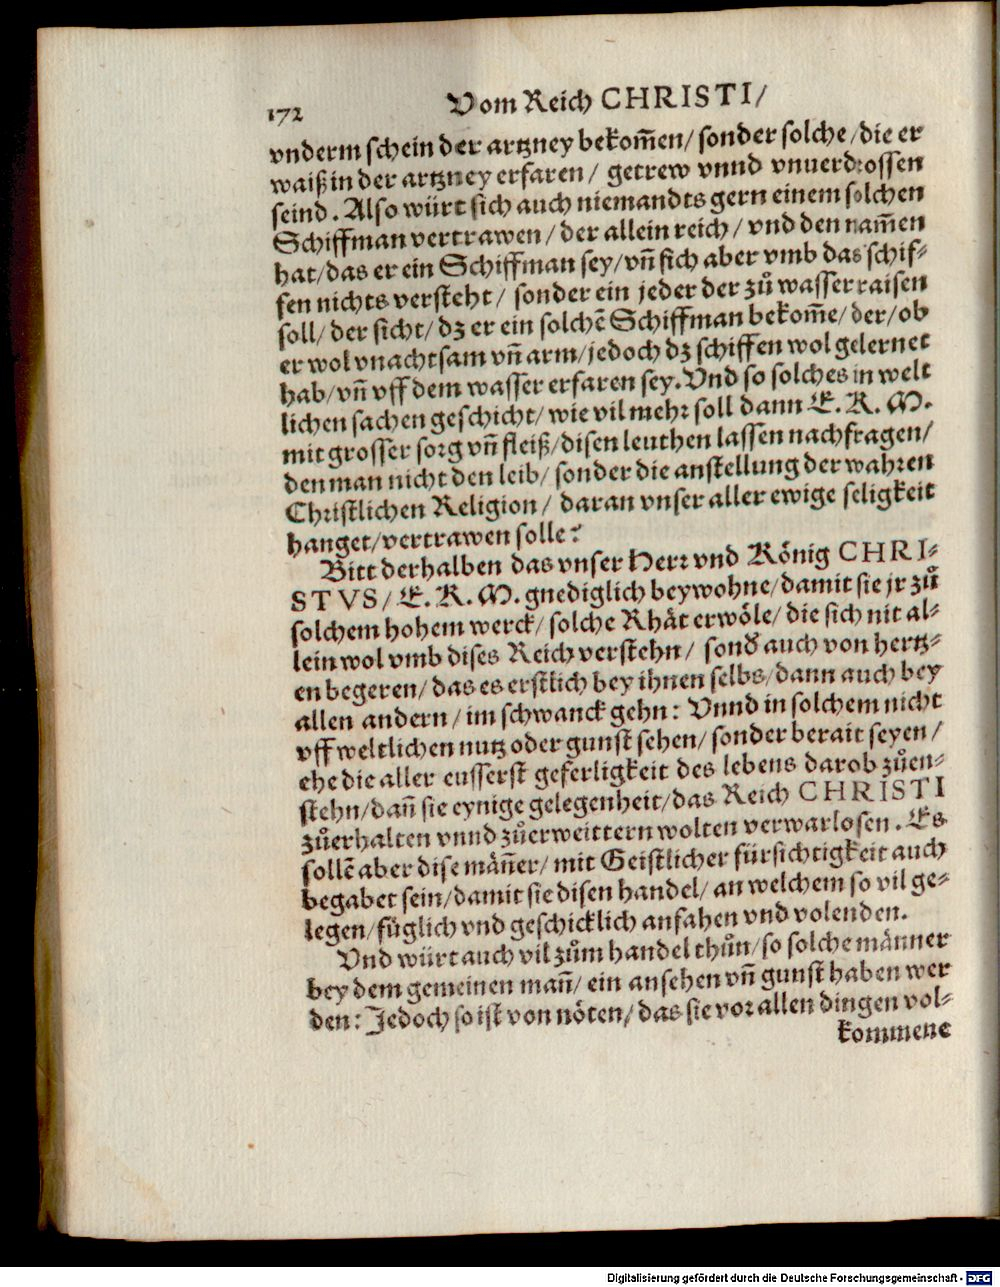 172 Vom Reich CHRISTI/
vnderm schein der artzney bekom̃en/ sonder solche/die er
waiß in der artzney erfaren/ getrew vnnd vnuerdrossen
seind. Also würt sich auch niemandts gern einem solchen
Schiffman vertrawen/ der allein reich/ vnd den nam̃en
hat/das er ein Schiffman sey/vñ sich aber vmb das schif-
fen nichts versteht/ sonder ein jeder der zů wasser raisen
soll/ der sicht/ dz er ein solchẽ Schiffman bekom̃e/ der/ob
er wol vnachtsam vñ arm/jedoch dz schiffen wol gelernet
hab/vñ vff dem wasser erfaren sey. Vnd so solches in welt
lichen sachen geschicht/ wie vil mehr soll dann E. K. M.
mit grosser sorg vñ fleiß/disen leuthen lassen nachfragen/
den man nicht den leib/ sonder die anstellung der wahren
Christlichen Religion/ daran vnser aller ewige seligkeit
hanget/vertrawen solle?
Bitt derhalben das vnser Herr vnd König CHRI-
STVS/ E. K. M. gnediglich beywohne/damit sie jr zů
solchem hohem werck/ solche Rhät erwöle/ die sich nit al-
lein wol vmb dises Reich verstehn/ sond' auch von hertz-
en begeren/das es erstlich bey ihnen selbs/dann auch bey
allen andern/im schwanck gehn: Vnnd in solchem nicht
vff weltlichen nutz oder gunst sehen/ sonder berait seyen/
ehe die aller eusserst geferligkeit des lebens darob zůen-
stehn/dañ sie eynige gelegenheit/das Reich CHRISTI
zůerhalten vnnd zůerweittern wolten verwarlosen. Es
sollẽ aber dise mäñer/ mit Geistlicher fürsichtigkeit auch
begabet sein/damit sie disen handel/ an welchem so vil ge-
legen/füglich vnd geschicklich anfahen vnd volenden.
Vnd würt auch vil zům handel thůn/so solche männer
bey dem gemeinen mañ/ ein ansehen vñ gunst haben wer
den: Jedoch so ist von nöten/das sie vor allen dingen vol-
kommene
Digitalisierung gefördert durch die Deutsche Forschungsgemeinschaft - DFG